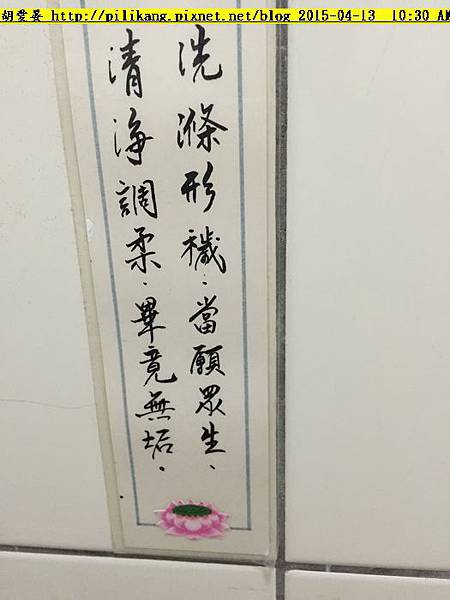 胡愛晏 http://pilikang.pixnet.net/blog 2015-04-13 10:30 AM
洗滌形穢、當願眾生、
清淨調柔、畢竟無垢。